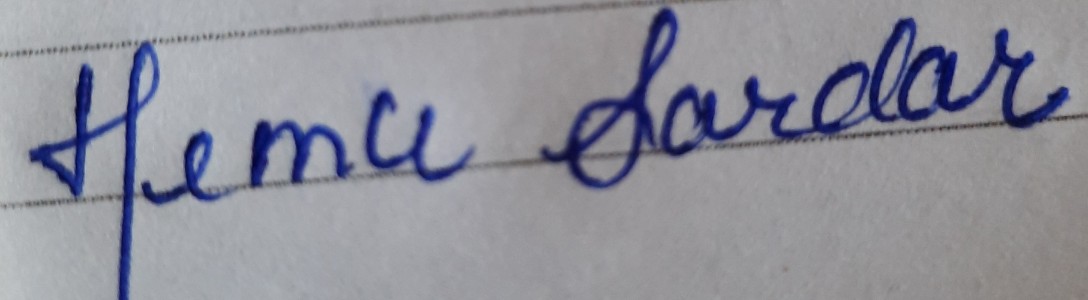 Hema Sardar